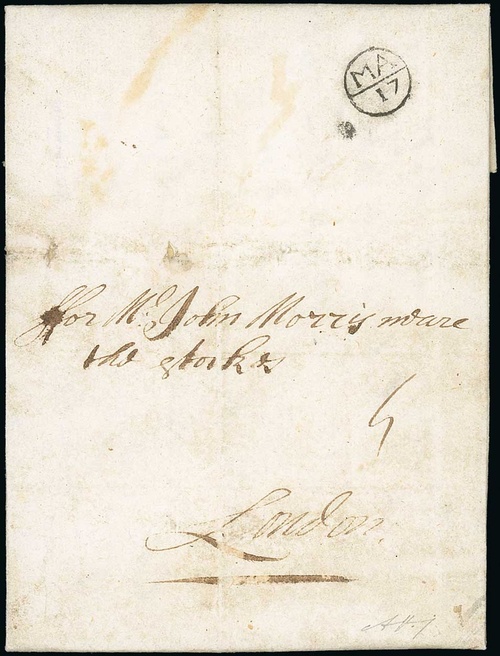 MA
17
ffor Mr John Morris neare
the stocks
London